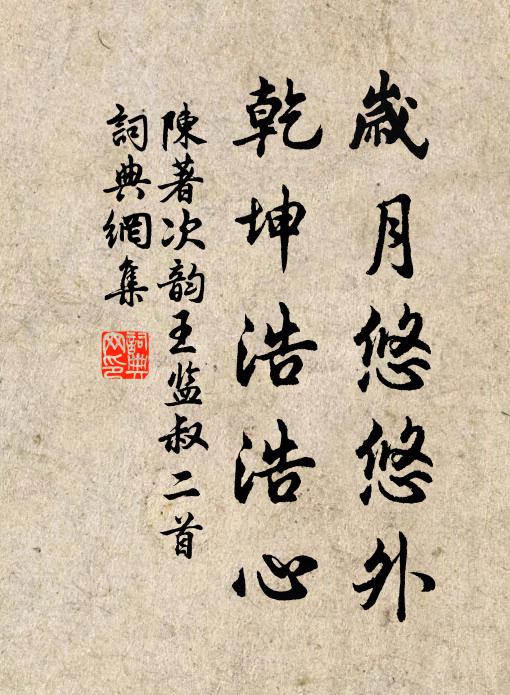 歲月悠悠外
乾坤浩浩心
陳著次韵王监叔二首
詞典網集
詞典网印